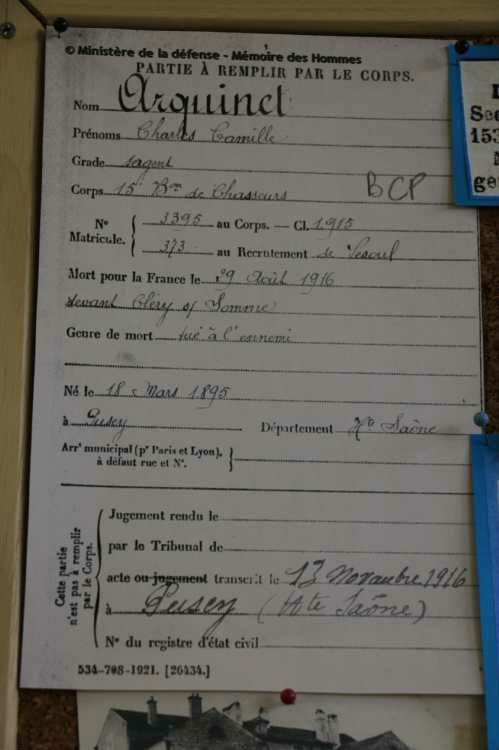 © Ministère de la défense - Mémoire des Hommes
PARTIE À REMPLIR PAR LE CORPS.
Nom Arguinet
Prénoms Charles Camille
Grade sergent
Corps 15e Bon de Chasseurs BCP
No Matricule. 3395 au Corps. — Cl. 1915
373 au Recrutement de Vesoul
Mort pour la France le 29 Août 1916
devant Cléry s/ Somme
Genre de mort tué à l'ennemi
Né le 18 Mars 1895
à Pusey Département Hte Saône
Arrt municipal (pr Paris et Lyon),
à défaut rue et No.
Cette partie n'est pas à remplir par le Corps.
Jugement rendu le
par le Tribunal de
acte ou jugement transcrit le 13 Novembre 1916
à Pusey (Hte Saône)
No du registre d'état civil
534-708-1921. [26434.]